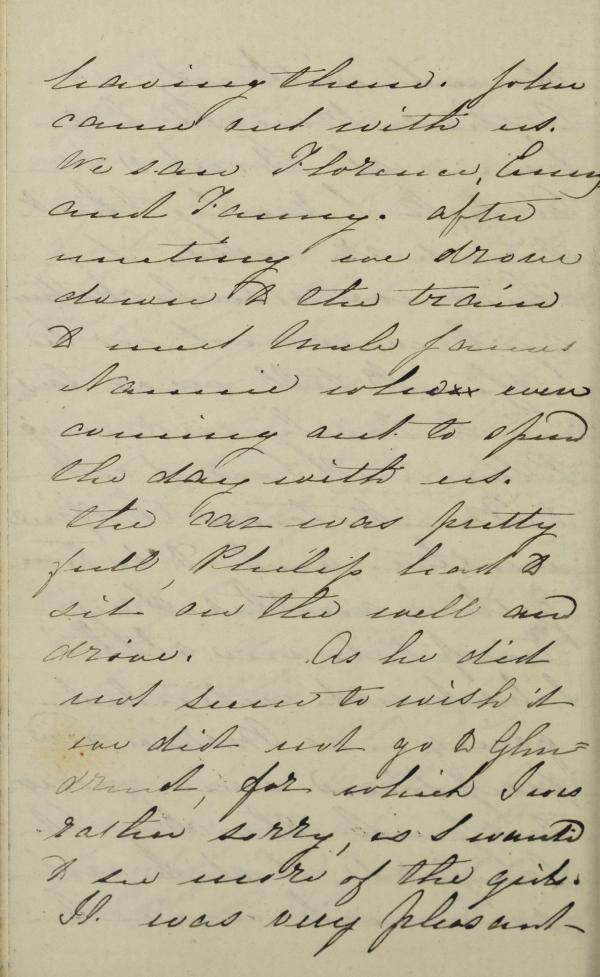 having them. John
came out with us.
We saw Florence, Emmy
and Fanny. After
meeting we drove
down to the train
to meet Uncle James
Nannie who were
coming out to spend
the day with us.
the car was pretty
full, Philip had to
sit on the well and
drove. As he did
not seem to wish it
we did not go to Glen=
drued, for which I was
rather sorry, as I wanted
to see more of the girls.
It was very pleasant